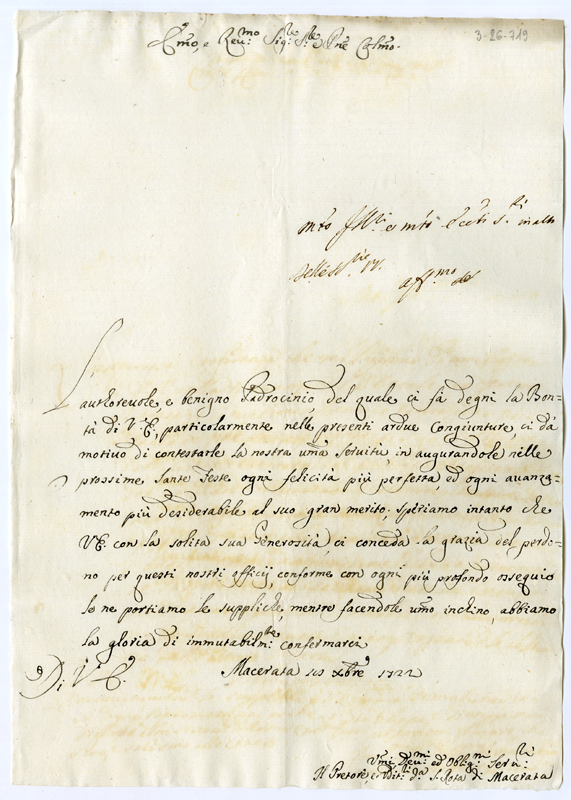 3-26-719
Em̃o, e Reu:mo Sig:re Sig:re Pñe Colmo.
mto Ill:ri et mto
aff:mo
L'
authoreuole, e benigno Padrocinio, del quale ci fà degni la Bon=
tà di V. E., particolarmente nelle presenti ardue Congiunture, ci dà
motiuo di contestarle la nostra um̃a seruitù, in augurandole nelle
prossime Sante Feste ogni felicità più perfetta, ed ogni auanza=
mento più desiderabile al suo gran merito; speriamo intanto che
V. E. con la solita sua Generosità, ci conceda la grazia del perdo=
no per questi nostri officij, conforme con ogni più profondo ossequio
le ne portiamo le suppliche, mentre facendole um̃o inchino, abbiamo
la gloria di immutabilm:te confermarci
Di V. E.
Macerata xbre 1722
Vmi Deu:mi ed Oblig:mi Seru:ri
Il Pretore, ed Udit:ri d:a S. Rota di Macerata